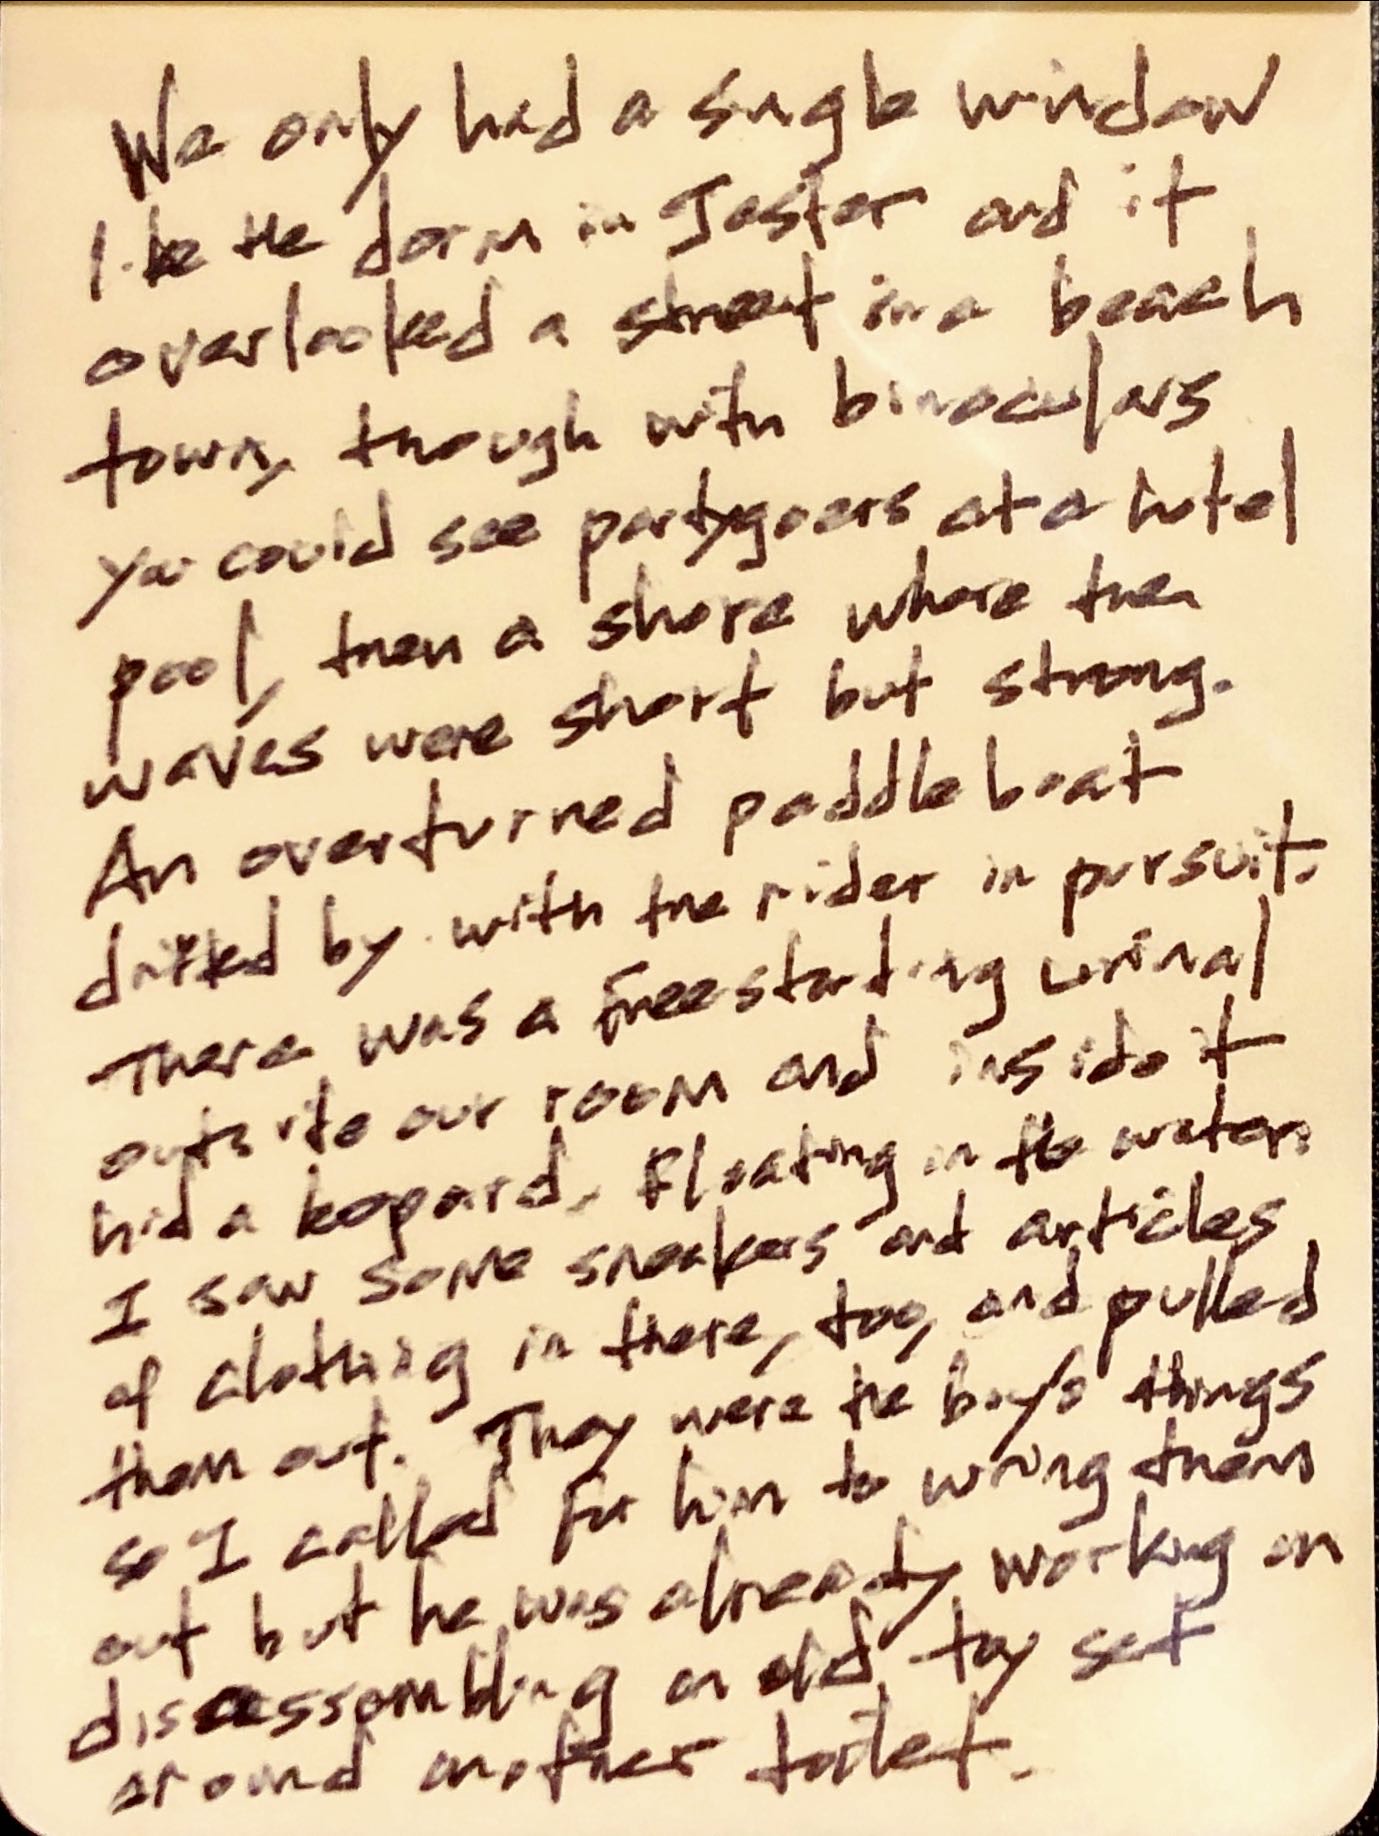 We only had a single window
like the dorm in Jester and it
overlooked a street in a beach
town, though with binoculars
you could see partygoers at a hotel
pool, then a shore where the
waves were short but strong.
An overturned paddle boat
drifted by with the rider in pursuit.
There was a freestanding urinal
outside our room and inside it
hid a leopard. Floating in the water,
I saw some sneakers and articles
of clothing in there, too, and pulled
them out. They were the boy's things
so I called for him to wring them
out but he was already working on
disassembling an old toy set
around another toilet.